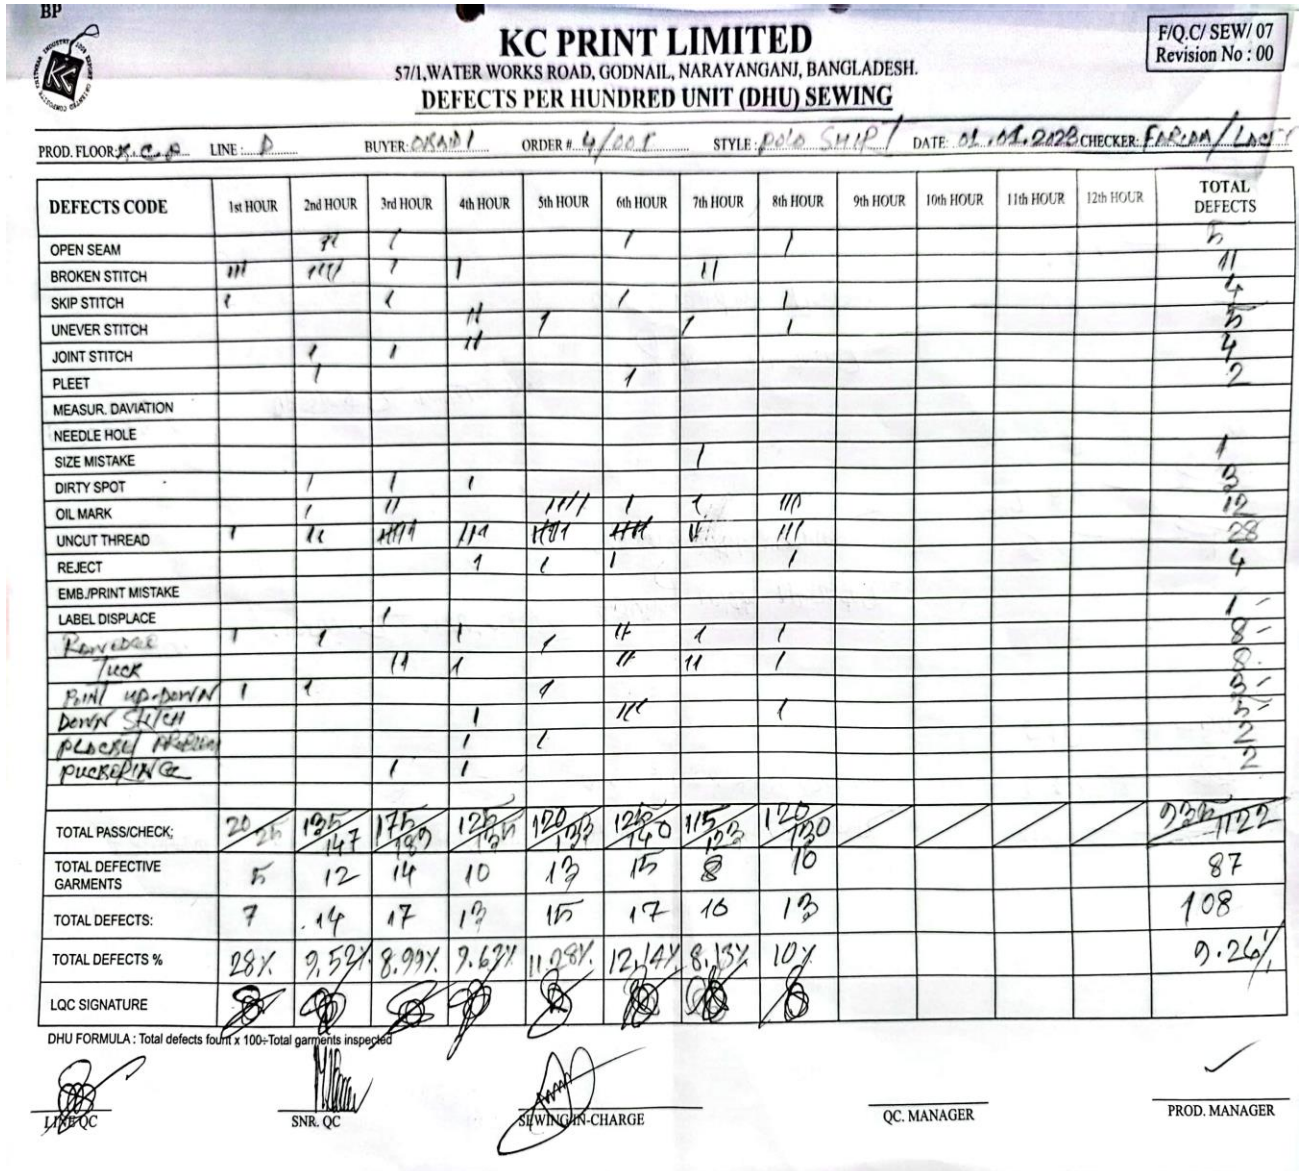 BP
KC PRINT LIMITED
57/1,WATER WORKS ROAD, GODNAIL, NARAYANGANJ, BANGLADESH.
DEFECTS PER HUNDRED UNIT (DHU) SEWING
F/Q.C/ SEW/ 07
Revision No : 00
PROD. FLOOR: K.C.P LINE : D BUYER: OKAIDI ORDER # 4/001 STYLE: POLO SHIRT DATE: 01.01.2023 CHECKER:
DEFECTS CODE 1st HOUR 2nd HOUR 3rd HOUR 4th HOUR 5th HOUR 6th HOUR 7th HOUR 8th HOUR 9th HOUR 10th HOUR 11th HOUR 12th HOUR TOTAL DEFECTS
OPEN SEAM II I I I 5
BROKEN STITCH III IIII I I II 11
SKIP STITCH I I I I 4
UNEVER STITCH II I I I 5
JOINT STITCH I I II 4
PLEET I I 2
MEASUR. DAVIATION
NEEDLE HOLE
SIZE MISTAKE I 1
DIRTY SPOT I I I 3
OIL MARK I II IIII I I III 12
UNCUT THREAD 28
REJECT I I I I 4
EMB./PRINT MISTAKE
LABEL DISPLACE I 1
I I I I II I I 8
TUCK II I II II I 8
POINT UP-DOWN I I I 3
DOWN STITCH I III I 5
PLACKET PROBLEM I I 2
PUCKERING I I 2
TOTAL PASS/CHECK; 20/25 135/147 175/189 125/135 120/133 125/140 115/123 120/130 935/1122
TOTAL DEFECTIVE GARMENTS 5 12 14 10 13 15 8 10 87
TOTAL DEFECTS: 7 14 17 13 15 17 10 13 108
TOTAL DEFECTS % 28% 9.52% 8.99% 9.63% 11.28% 12.14% 8.13% 10% 9.26%
LQC SIGNATURE
DHU FORMULA : Total defects fount x 100÷Total garments inspected
LINE QC SNR. QC SEWING IN-CHARGE QC. MANAGER PROD. MANAGER